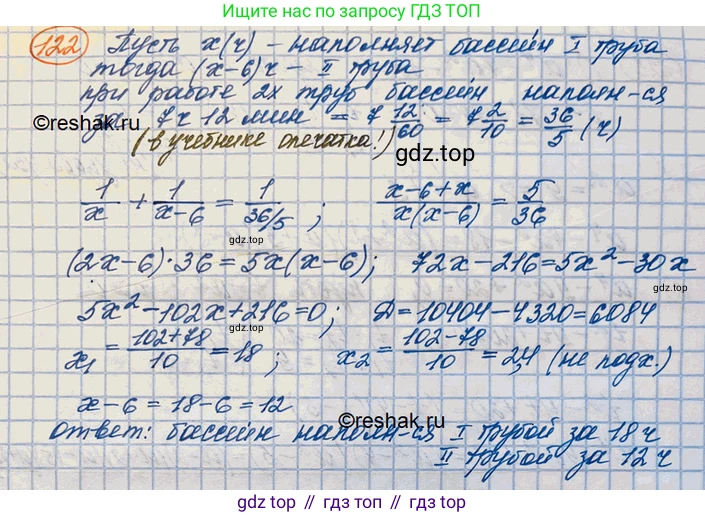 Ищите по запросу ГДЗ ТОП
122 Пусть x(ч) - наполняет бассейн I труба
тогда (x-6)ч - II труба
при работе 2х труб бассейн наполн-ся
за 7ч 12 мин = 7 12/60 = 7 2/10 = 36/5 (ч)
©reshak.ru
(в учебнике опечатка!)
gdz.top
1/x + 1/(x-6) = 1/(36/5) ; (x-6+x)/(x(x-6)) = 5/36
gdz.top
gdz.top
(2x-6)·36 = 5x(x-6); 72x-216=5x²-30x
5x²-102x+216=0; D=10404-4320=6084
gdz.top
gdz.top
x₁ = (102+78)/10 = 18; x₂ = (102-78)/10 = 2,4 (не подх.)
x-6 = 18-6 = 12
©reshak.ru
ответ: бассейн наполн-ся I трубой за 18ч
gdz.top
II трубой за 12ч
gdz.top // гдз.топ // gdz.top